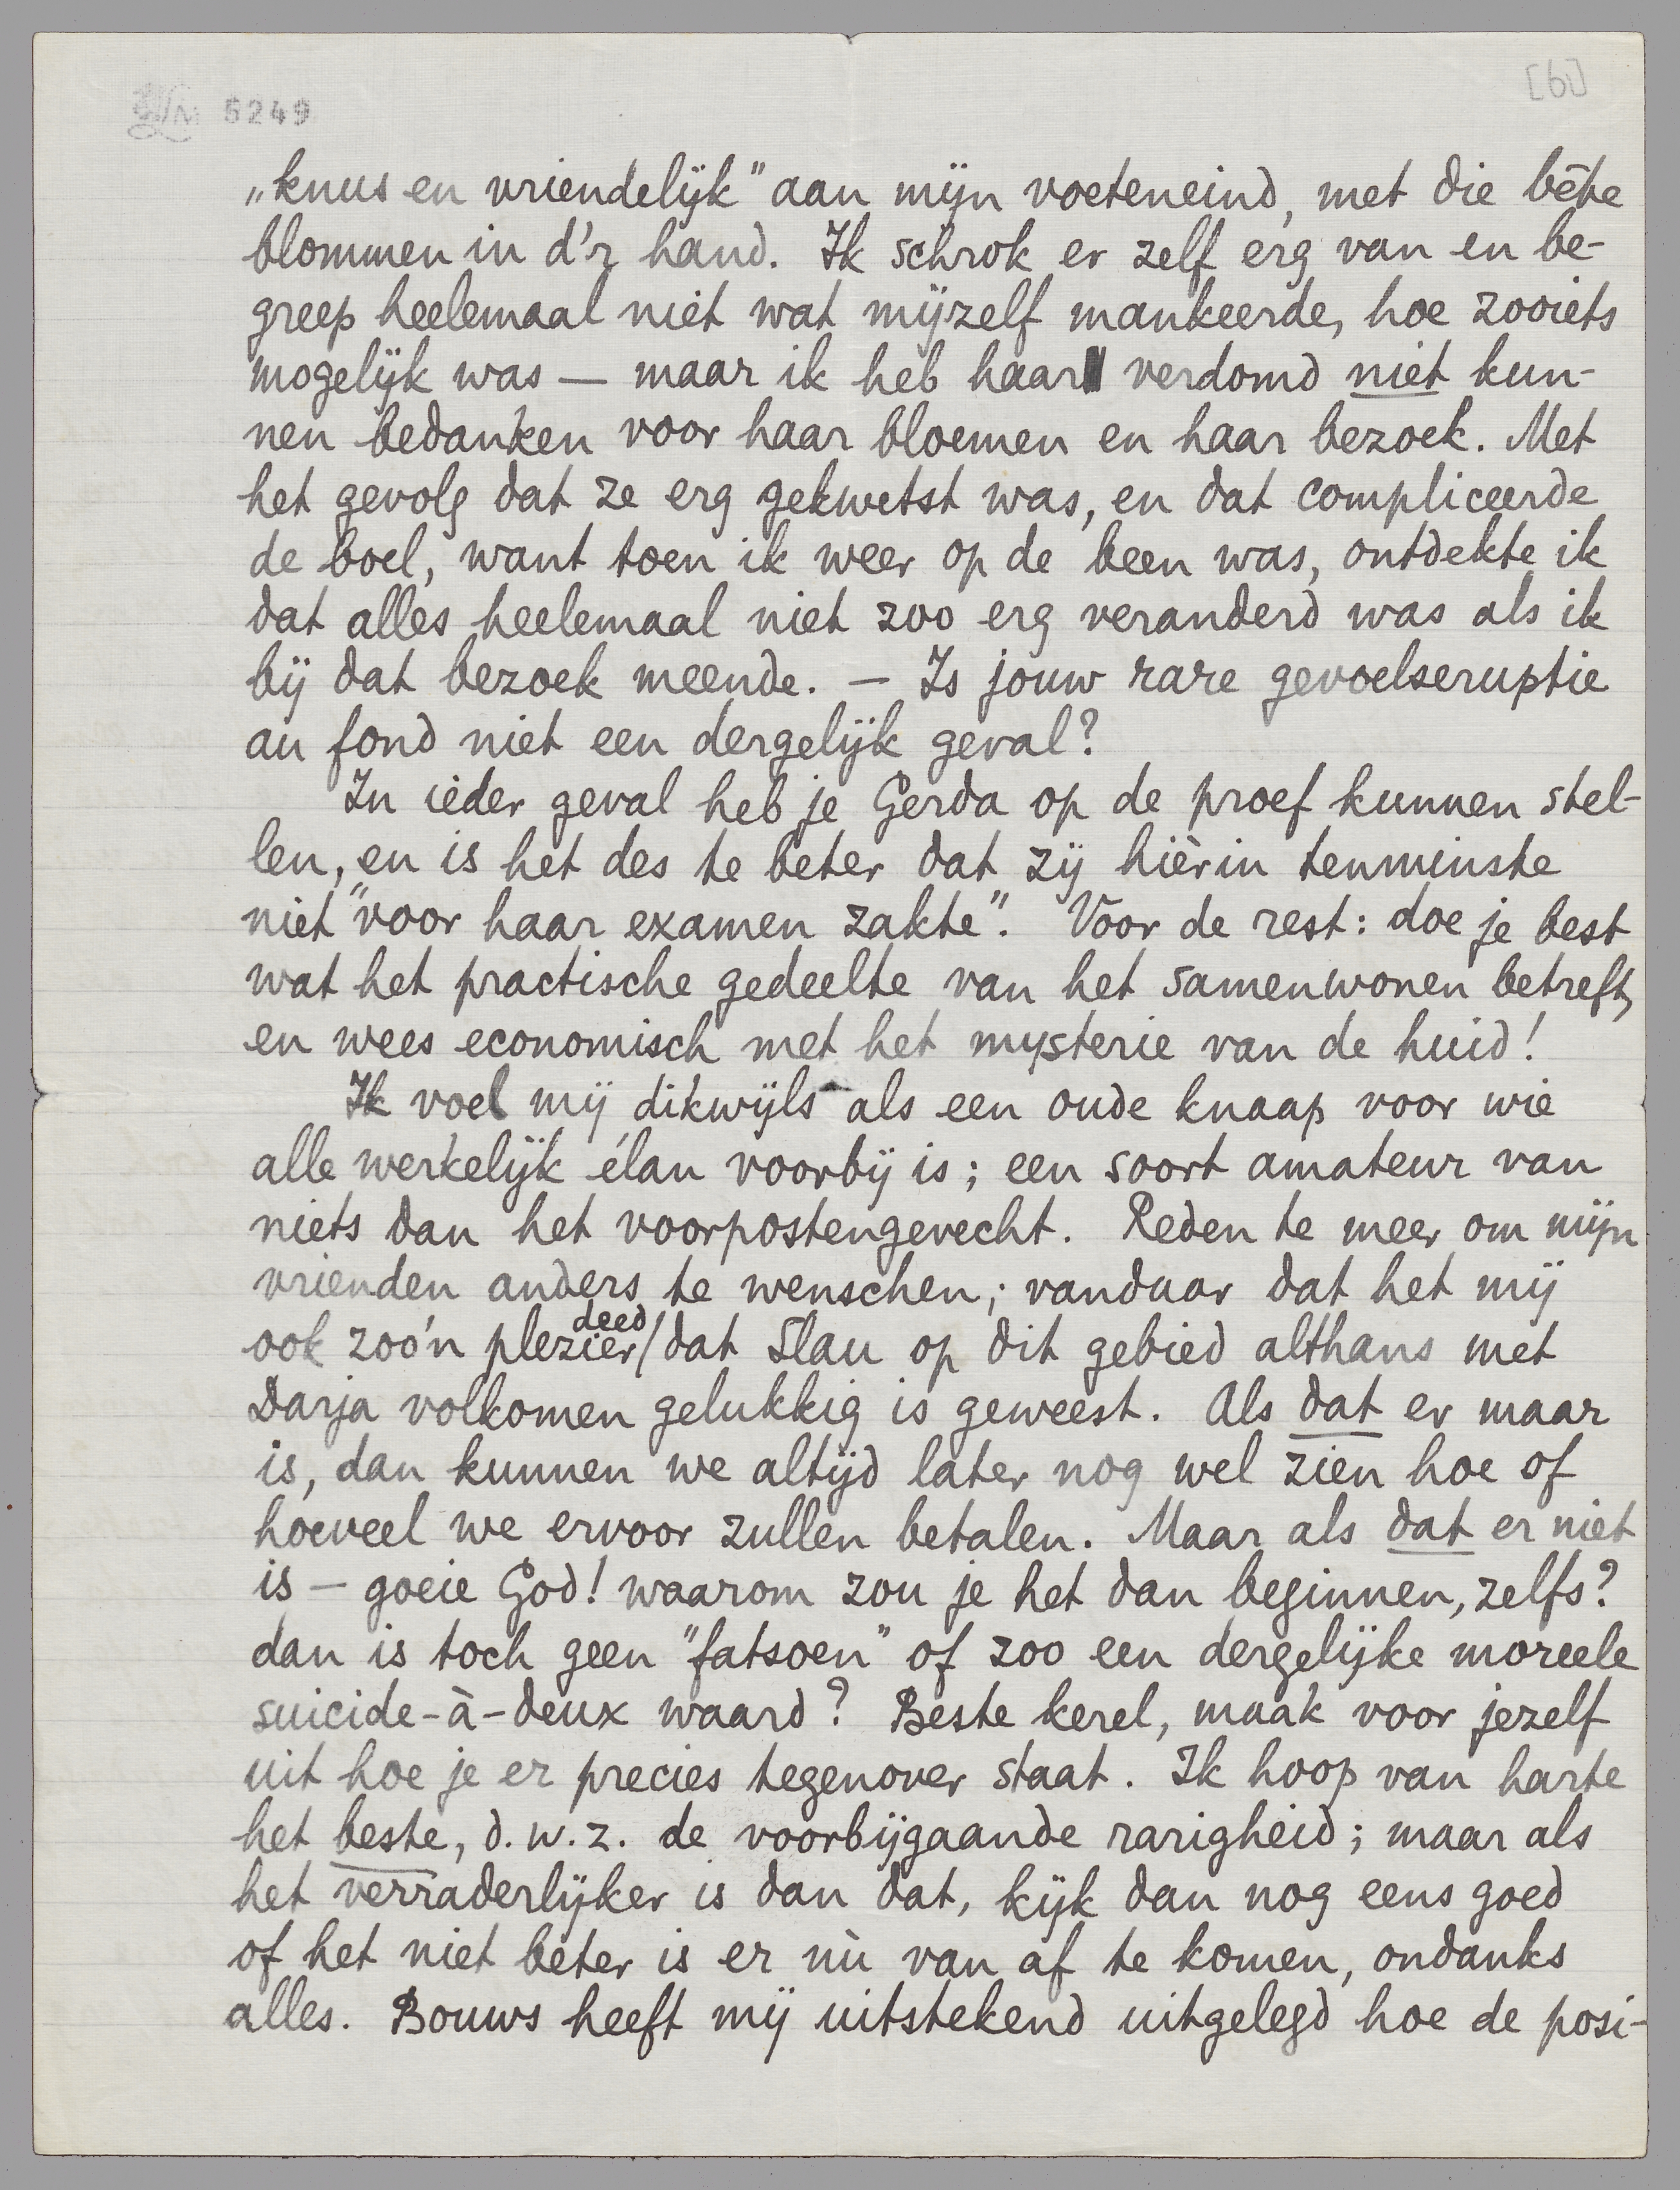 5249
[6]
„knus en vriendelijk" aan mijn voeteneind, met die bête
blommen in d'r hand. Ik schrok er zelf erg van en be-
greep heelemaal niet wat mijzelf mankeerde, hoe zooiets
mogelijk was — maar ik heb haar verdomd niet kun-
nen bedanken voor haar bloemen en haar bezoek. Met
het gevolg dat ze erg gekwetst was, en dat compliceerde
de boel, want toen ik weer op de been was, ontdekte ik
dat alles heelemaal niet zoo erg veranderd was als ik
bij dat bezoek meende. — Is jouw rare gevoelseruptie
au fond niet een dergelijk geval?
In ieder geval heb je Gerda op de proef kunnen stel-
len, en is het des te beter dat zij hièrin tenminste
niet "voor haar examen zakte". Voor de rest: doe je best
wat het practische gedeelte van het samenwonen betreft,
en wees economisch met het mysterie van de huid!
Ik voel mij dikwijls als een oude knaap voor wie
alle werkelijk élan voorbij is; een soort amateur van
niets dan het voorpostengevecht. Reden te meer om mijn
vrienden anders te wenschen; vandaar dat het mij
ook zoo'n plezier deed dat Slau op dit gebied althans met
Darja volkomen gelukkig is geweest. Als dat er maar
is, dan kunnen we altijd later nog wel zien hoe of
hoeveel we ervoor zullen betalen. Maar als dat er niet
is — goeie God! waarom zou je het dan beginnen, zelfs?
dan is toch geen "fatsoen" of zoo een dergelijke moreele
suicide-à-deux waard? Beste kerel, maak voor jezelf
uit hoe je er precies tegenover staat. Ik hoop van harte
het beste, d.w.z. de voorbijgaande rarigheid; maar als
het verraderlijker is dan dat, kijk dan nog eens goed
of het niet beter is er nù van af te komen, ondanks
alles. Bouws heeft mij uitstekend uitgelegd hoe de posi-